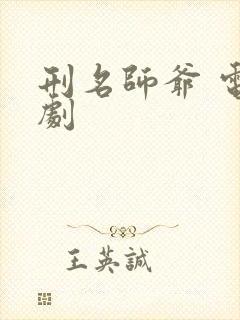 刑名師爺 電
劇
王英誠